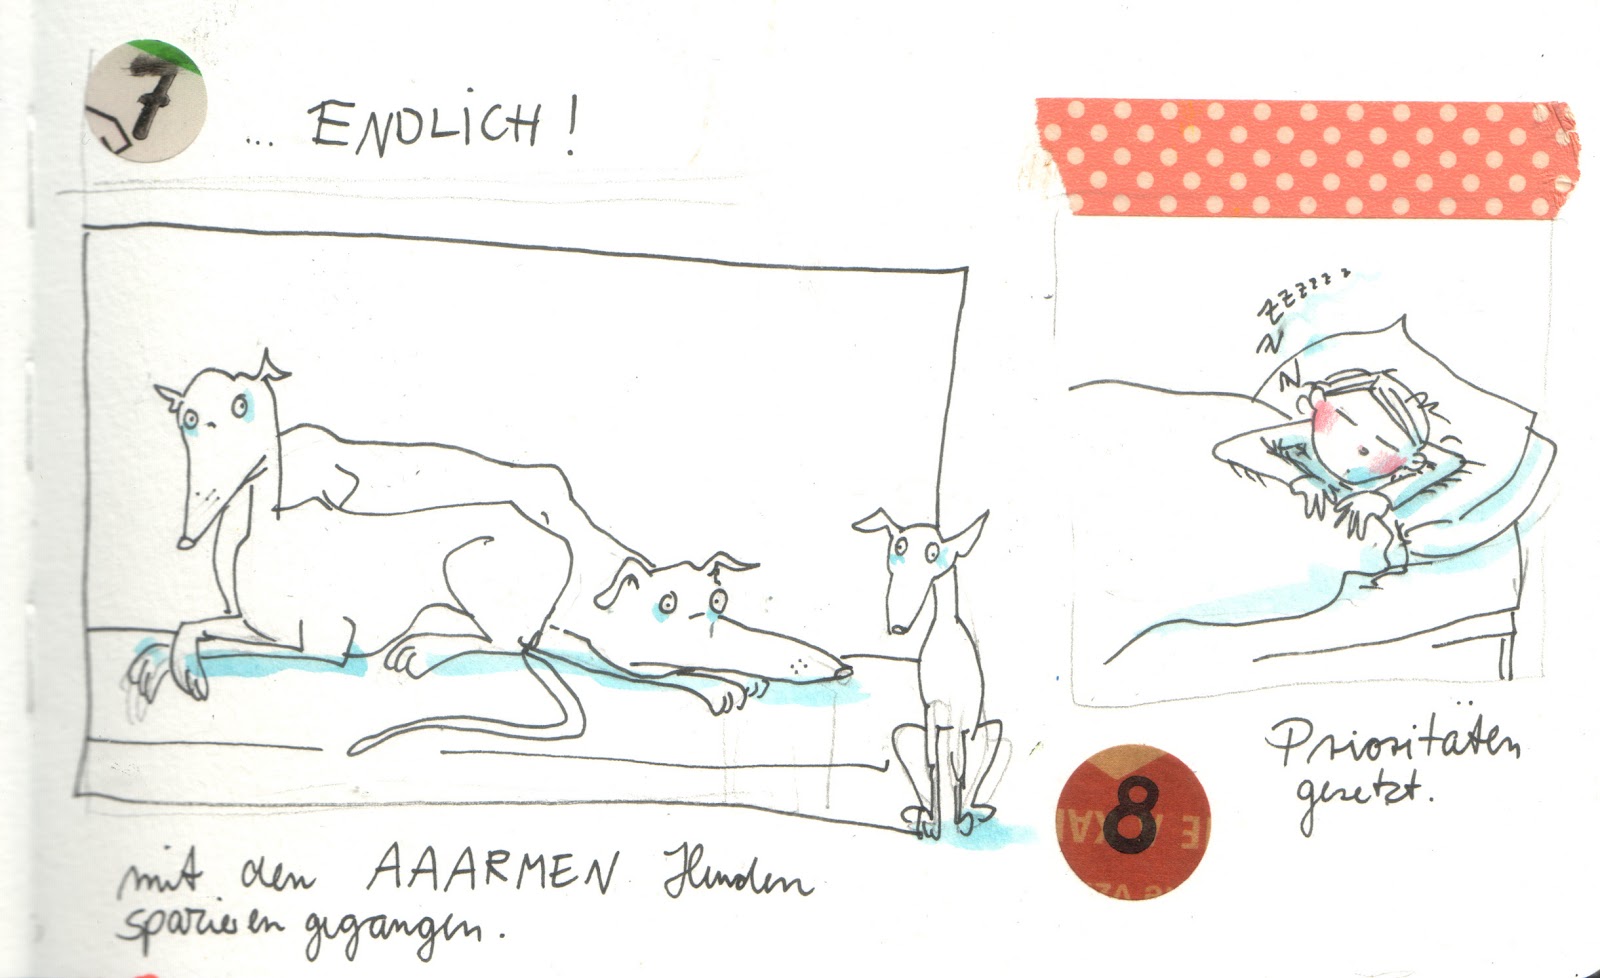 7
... ENDLICH!
mit den AAARMEN Hunden
spazieren gegangen.
zzzzzzz
N
N
8
Prioritäten
gesetzt.